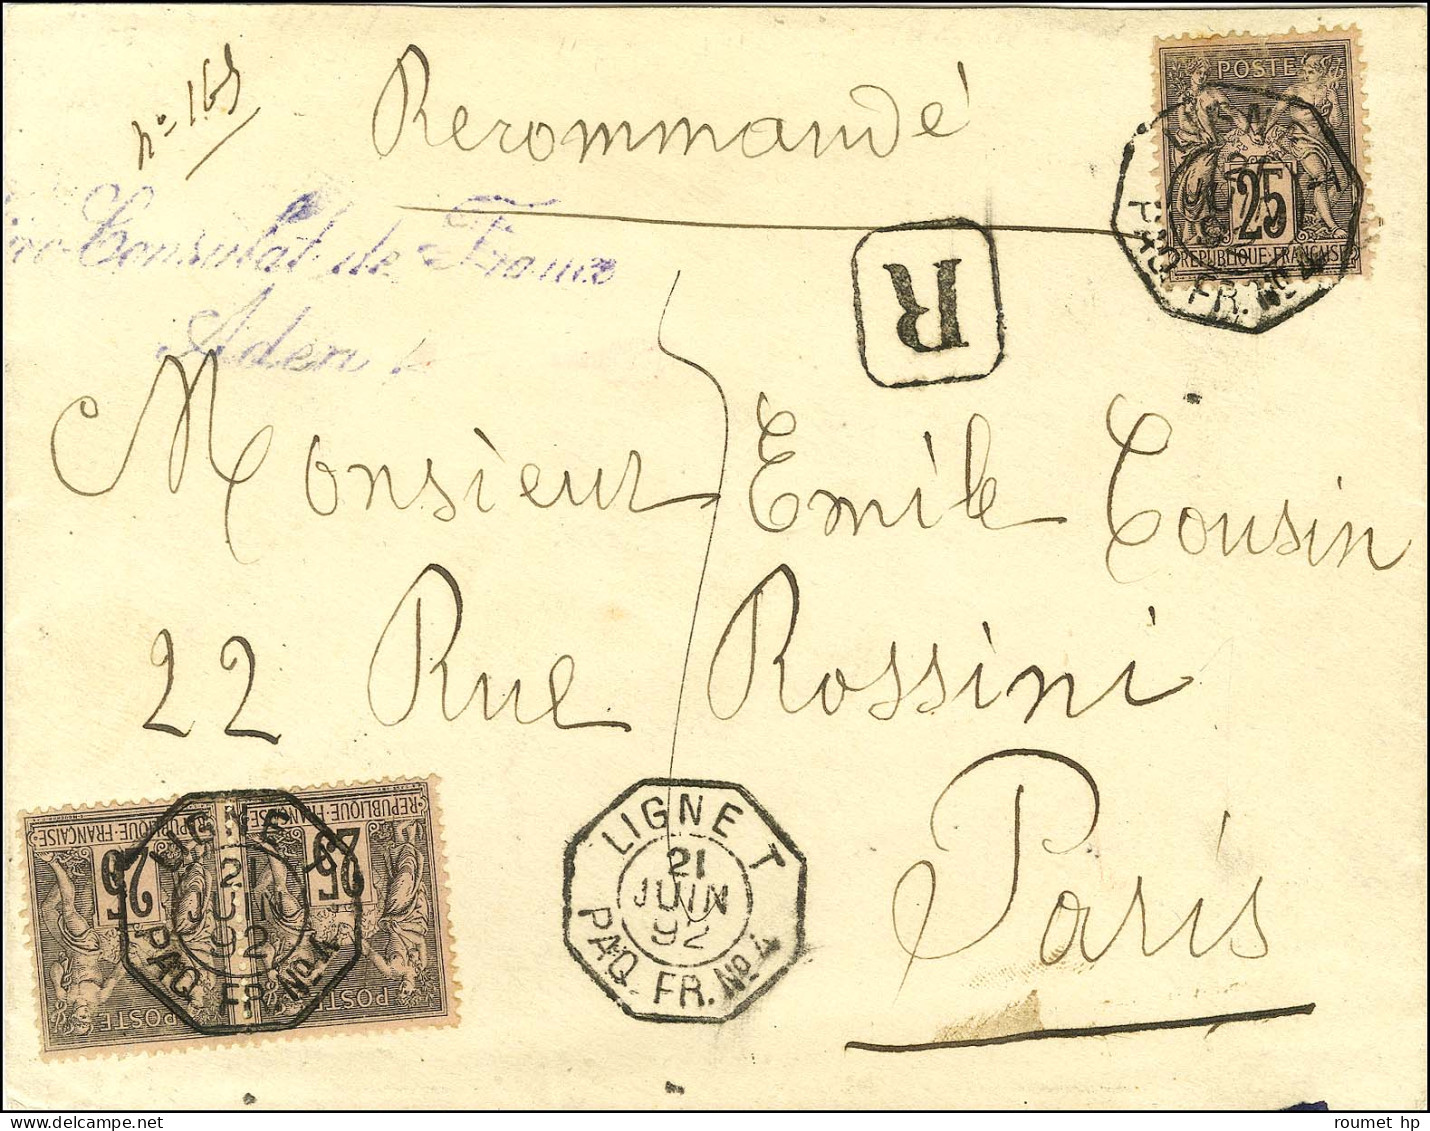 nº 165
Recommandé
POSTE
25
REPUBLIQUE FRANÇAISE
PAQ. FR. Nº 4
R
Consulat de France
Aden
Monsieur Emile Cousin
22 Rue Rossini
Paris
REPUBLIQUE FRANÇAISE
25
POSTE
REPUBLIQUE FRANÇAISE
25
POSTE
LIGNE T
21
JUIN
92
PAQ. FR. Nº 4
LIGNE T
21
JUIN
92
PAQ. FR. Nº 4
roumet hp